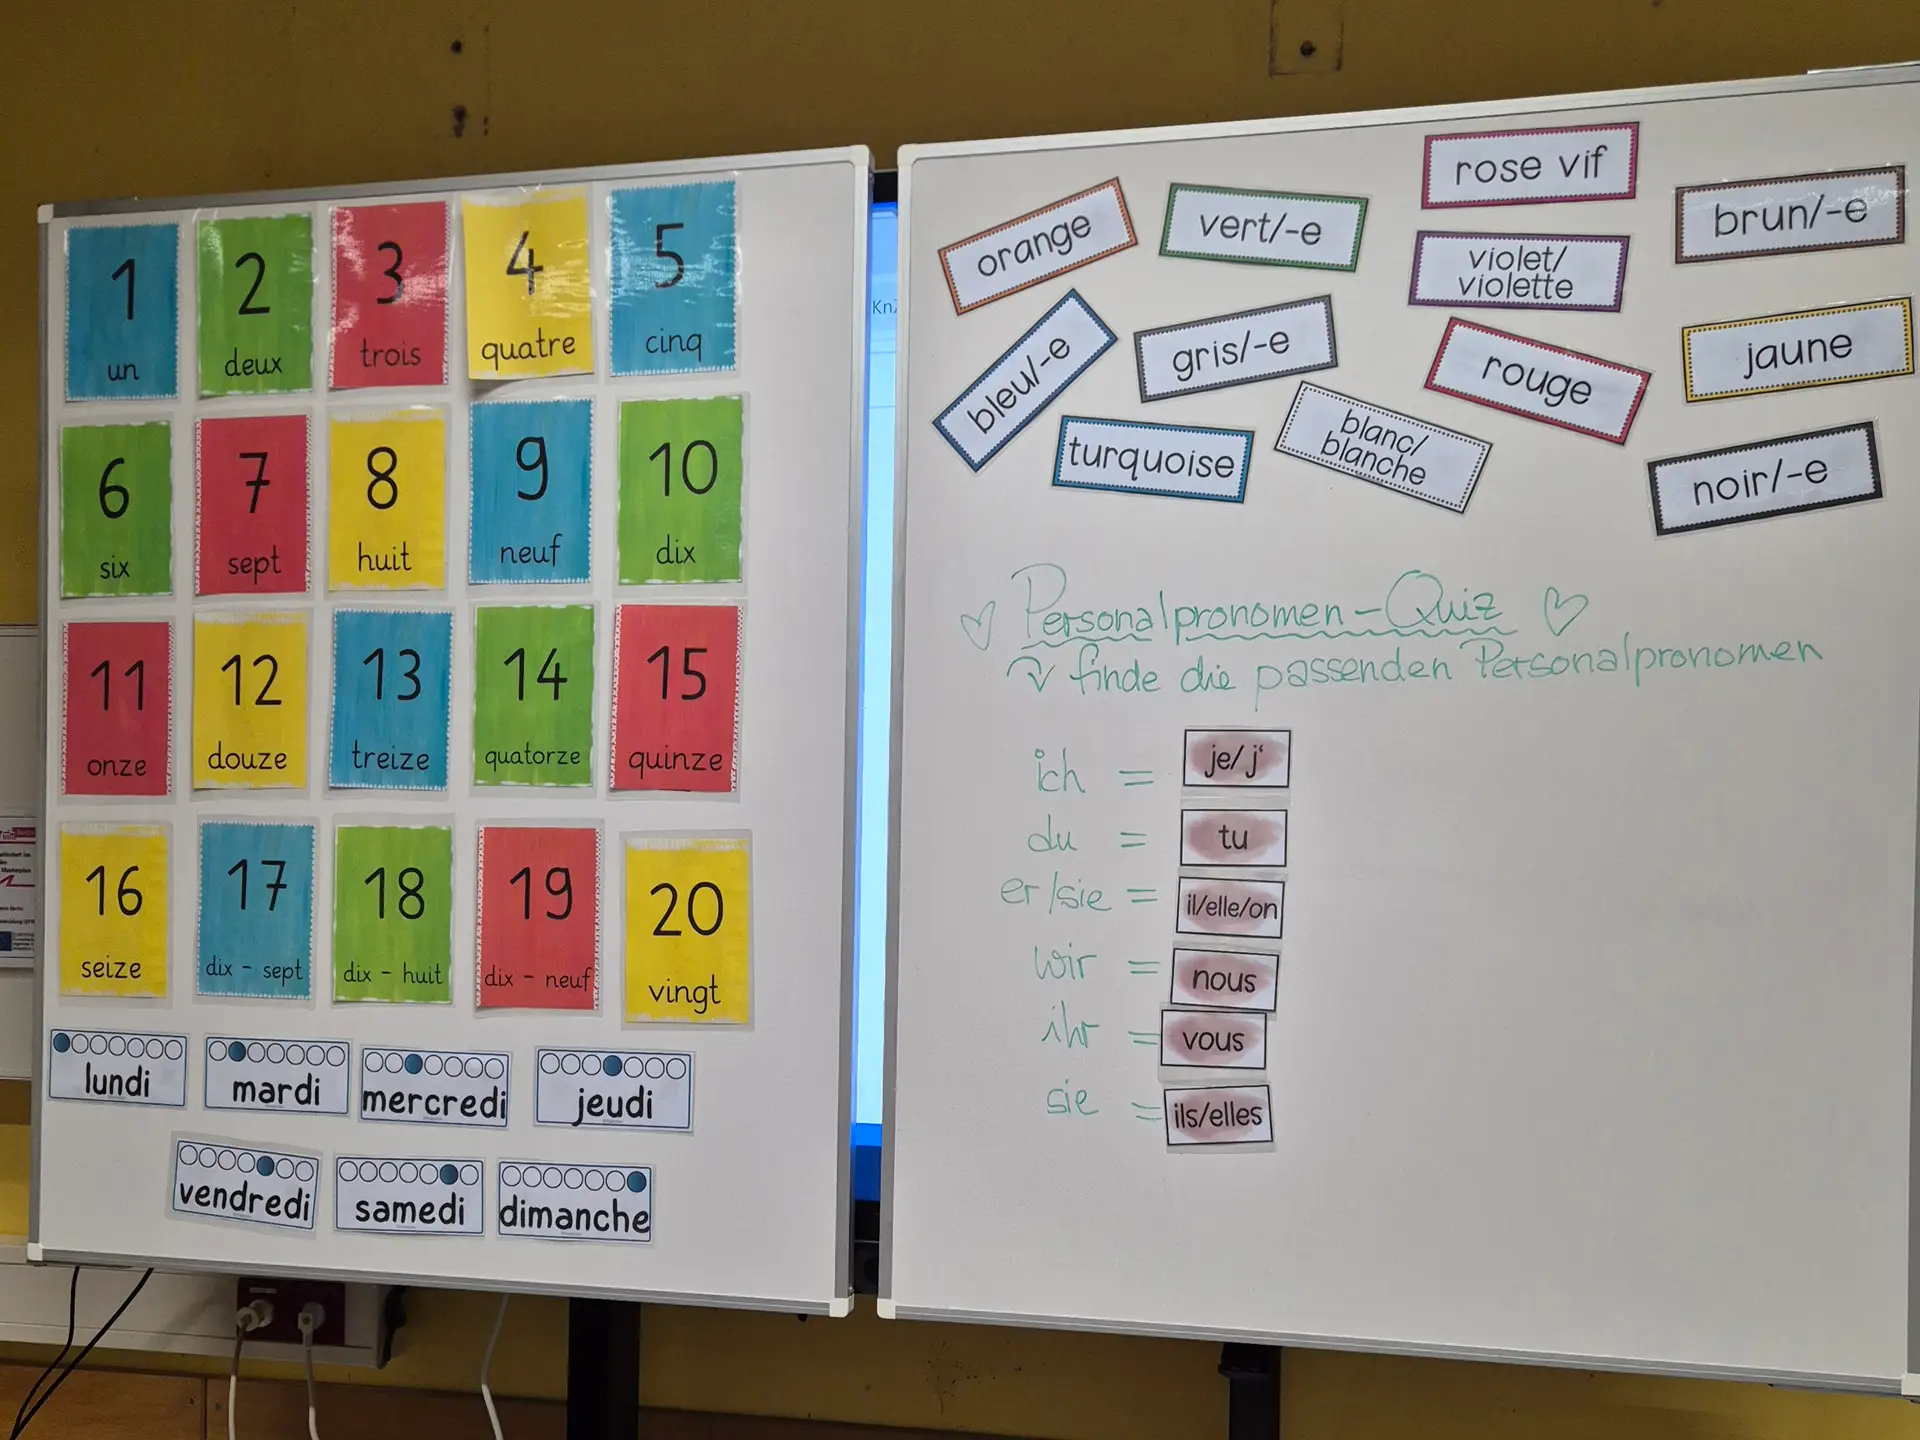 1
un
2
deux
3
trois
4
quatre
5
cinq
6
six
7
sept
8
huit
9
neuf
10
dix
11
onze
12
douze
13
treize
14
quatorze
15
quinze
16
seize
17
dix - sept
18
dix - huit
19
dix - neuf
20
vingt
lundi
mardi
mercredi
jeudi
vendredi
samedi
dimanche
orange
vert/-e
rose vif
brun/-e
violet/
violette
bleu/-e
gris/-e
rouge
jaune
turquoise
blanc/
blanche
noir/-e
Personalpronomen-Quiz
finde die passenden Personalpronomen
ich = je/j'
du = tu
er/sie = il/elle/on
wir = nous
ihr = vous
sie = ils/elles